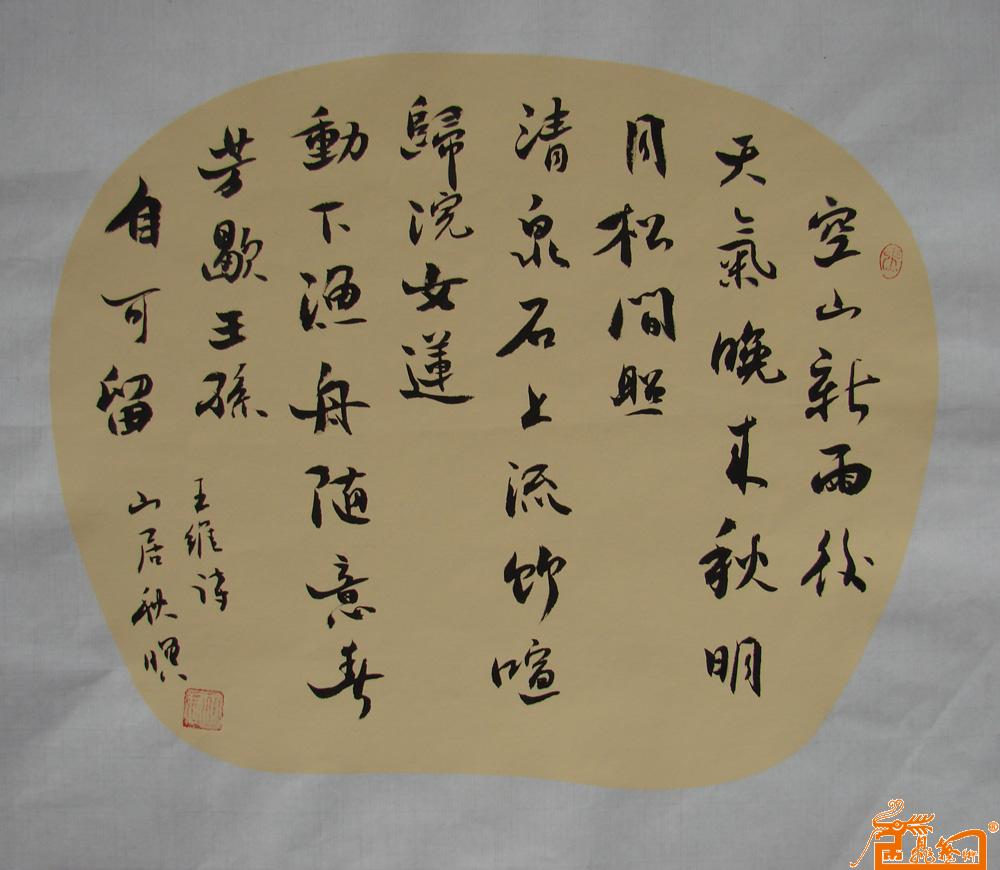 空山新雨後
天氣晚來秋明
月松間照
清泉石上流竹喧
歸浣女蓮
動下漁舟隨意春
芳歇王孫
自可留
王維詩
山居秋暝